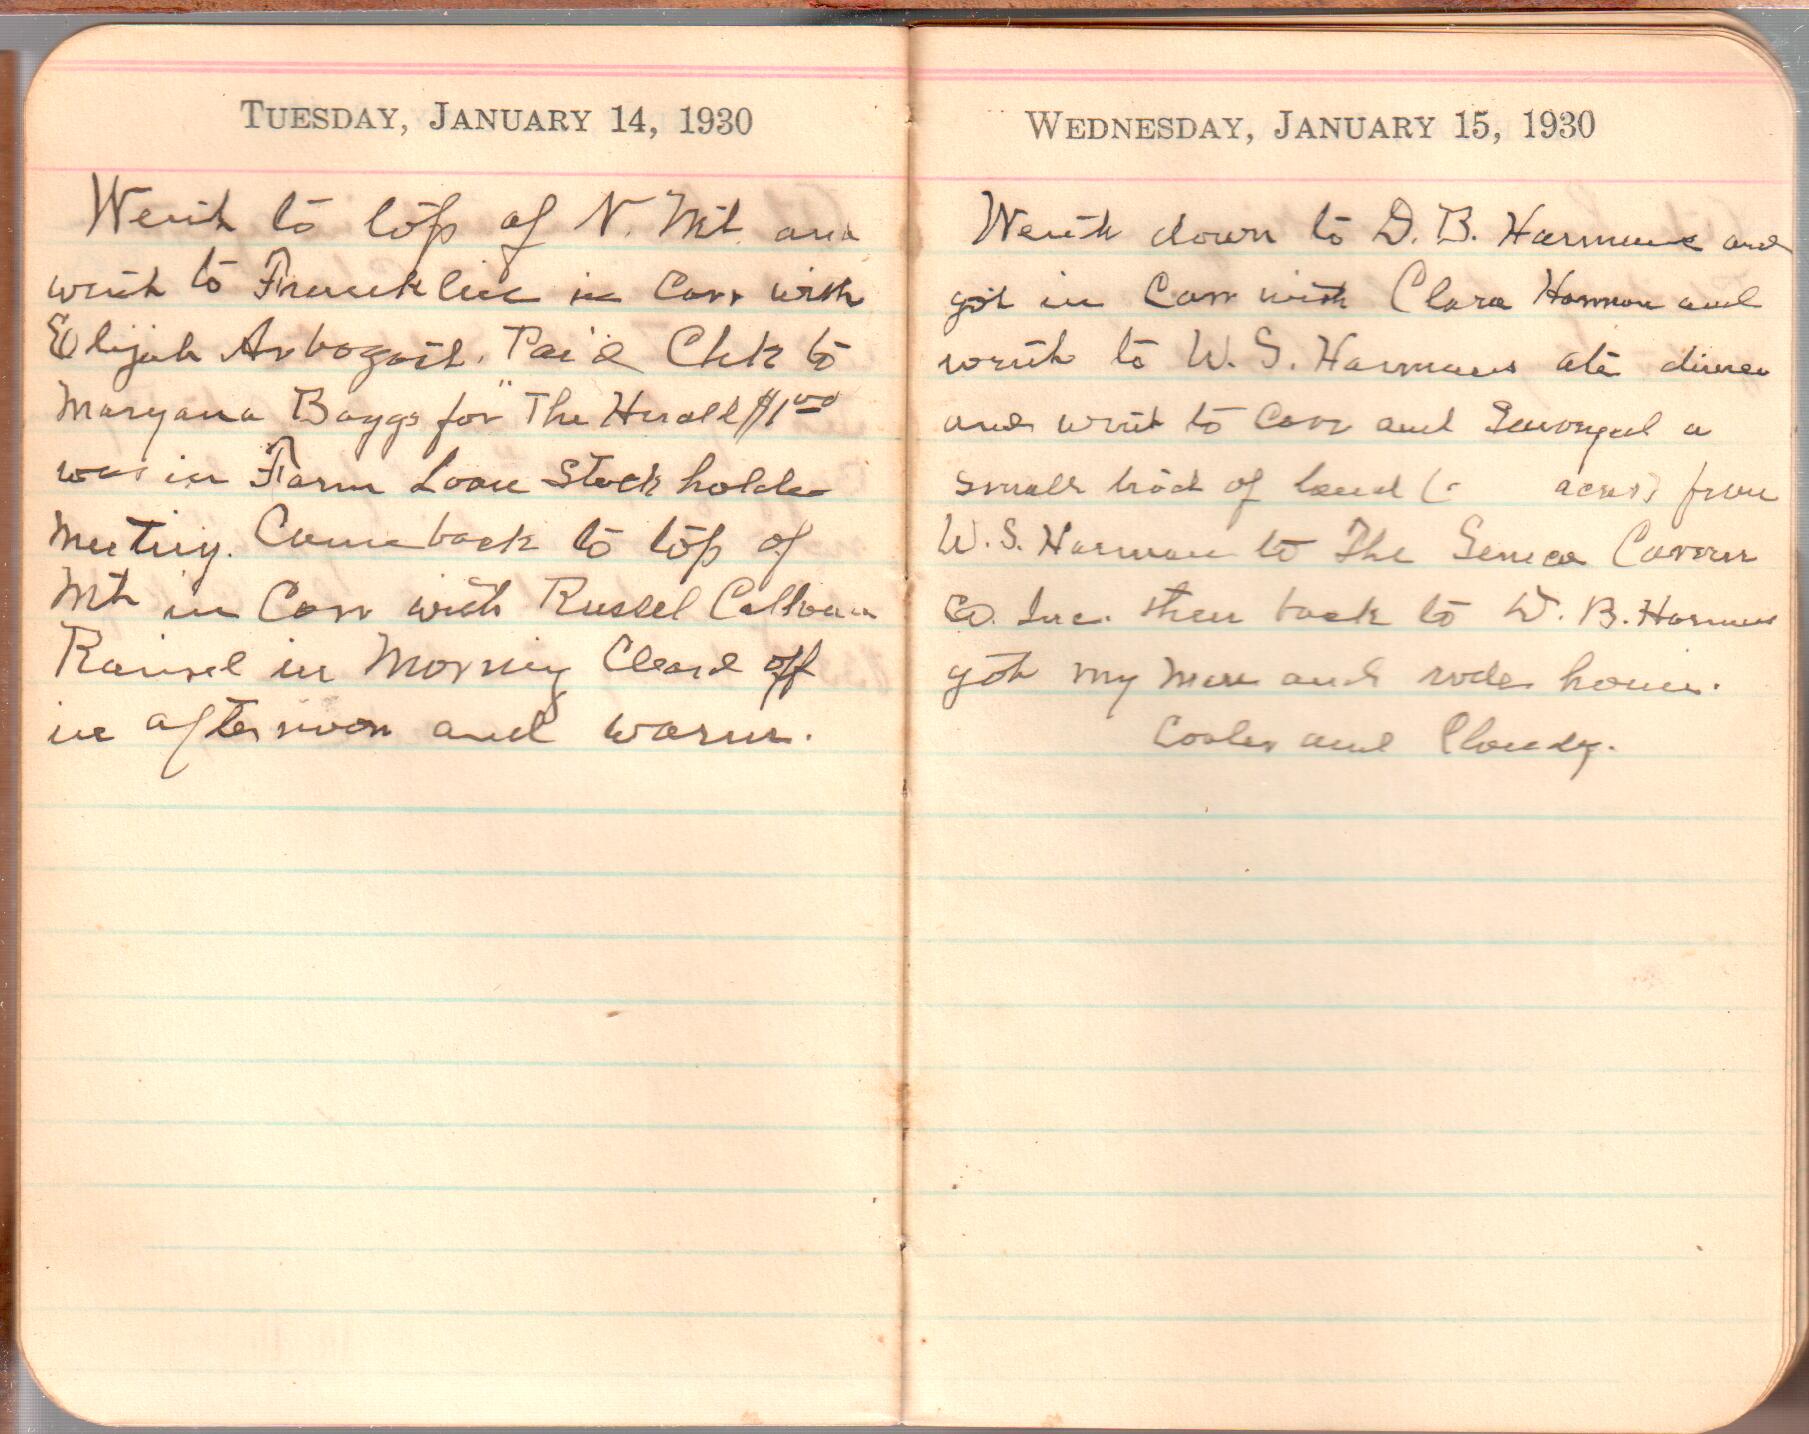 TUESDAY, JANUARY 14, 1930
Went to top of N. Mt. and
went to Francklin in Carr with
Elijah Arbogast. Pai'd Chk to
Maryana Boggs for "The Herald $1.00
was in Farm Loan Stock holder
Meeting. Came back to top of
Mt in Carr with Russel Calhoun
Rained in Morning Cleard off
in afternoon and warm.
WEDNESDAY, JANUARY 15, 1930
Went down to D. B. Harmans and
got in Carr with Clara Harman and
went to W. S. Harmans ate dinner
and went to Cave and Surveyed a
small track of land ( acres) from
W. S. Harman to The Seneca Cavern
Co. Inc. then back to D. B. Harmans
got my Mare and rode home.
Cooler and Cloudy.